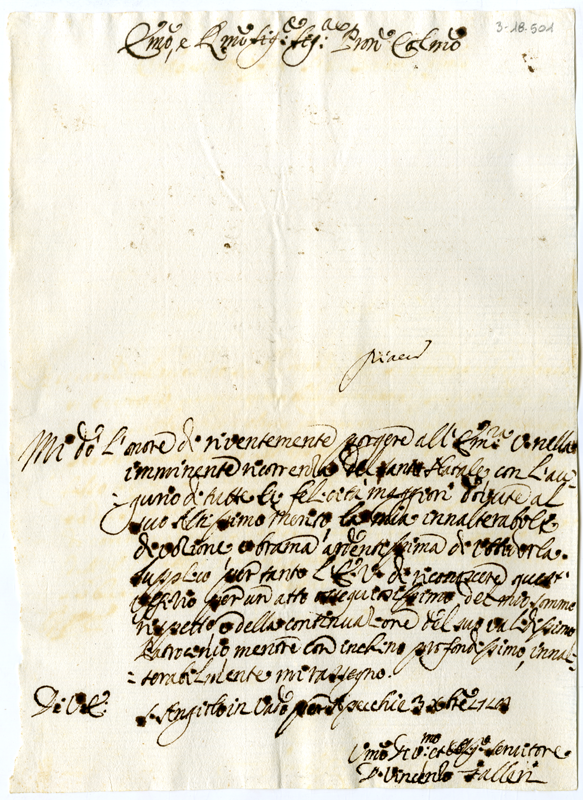 3-18-501
Emo, e Rmo Sig.e Sig.e Pron Colmo
Mi dò l'onore di riventemente porgere all'Emza V. nella
imminente ricorrenza del Santo Natale con l'au-
gurio di tutte le felicità maggiori dovute al
suo Altissimo Merito la mia innalterabole
devozione e brama ardentissima di
supplico per tanto l'E.V. di riconoscere quest'
offizio per un atto ossequiosissimo del mio sommo
rispetto e della continuazione del suo validissimo
Patrocinio mentre con inchino profondissimo, innal-
terabilmente mi rassegno.
Di V.E.
S. Angiolo in Vado per Apecchie 3 Xbre
Umo Devmo et Obbligo Servitore
D. Vincenzo Falleri